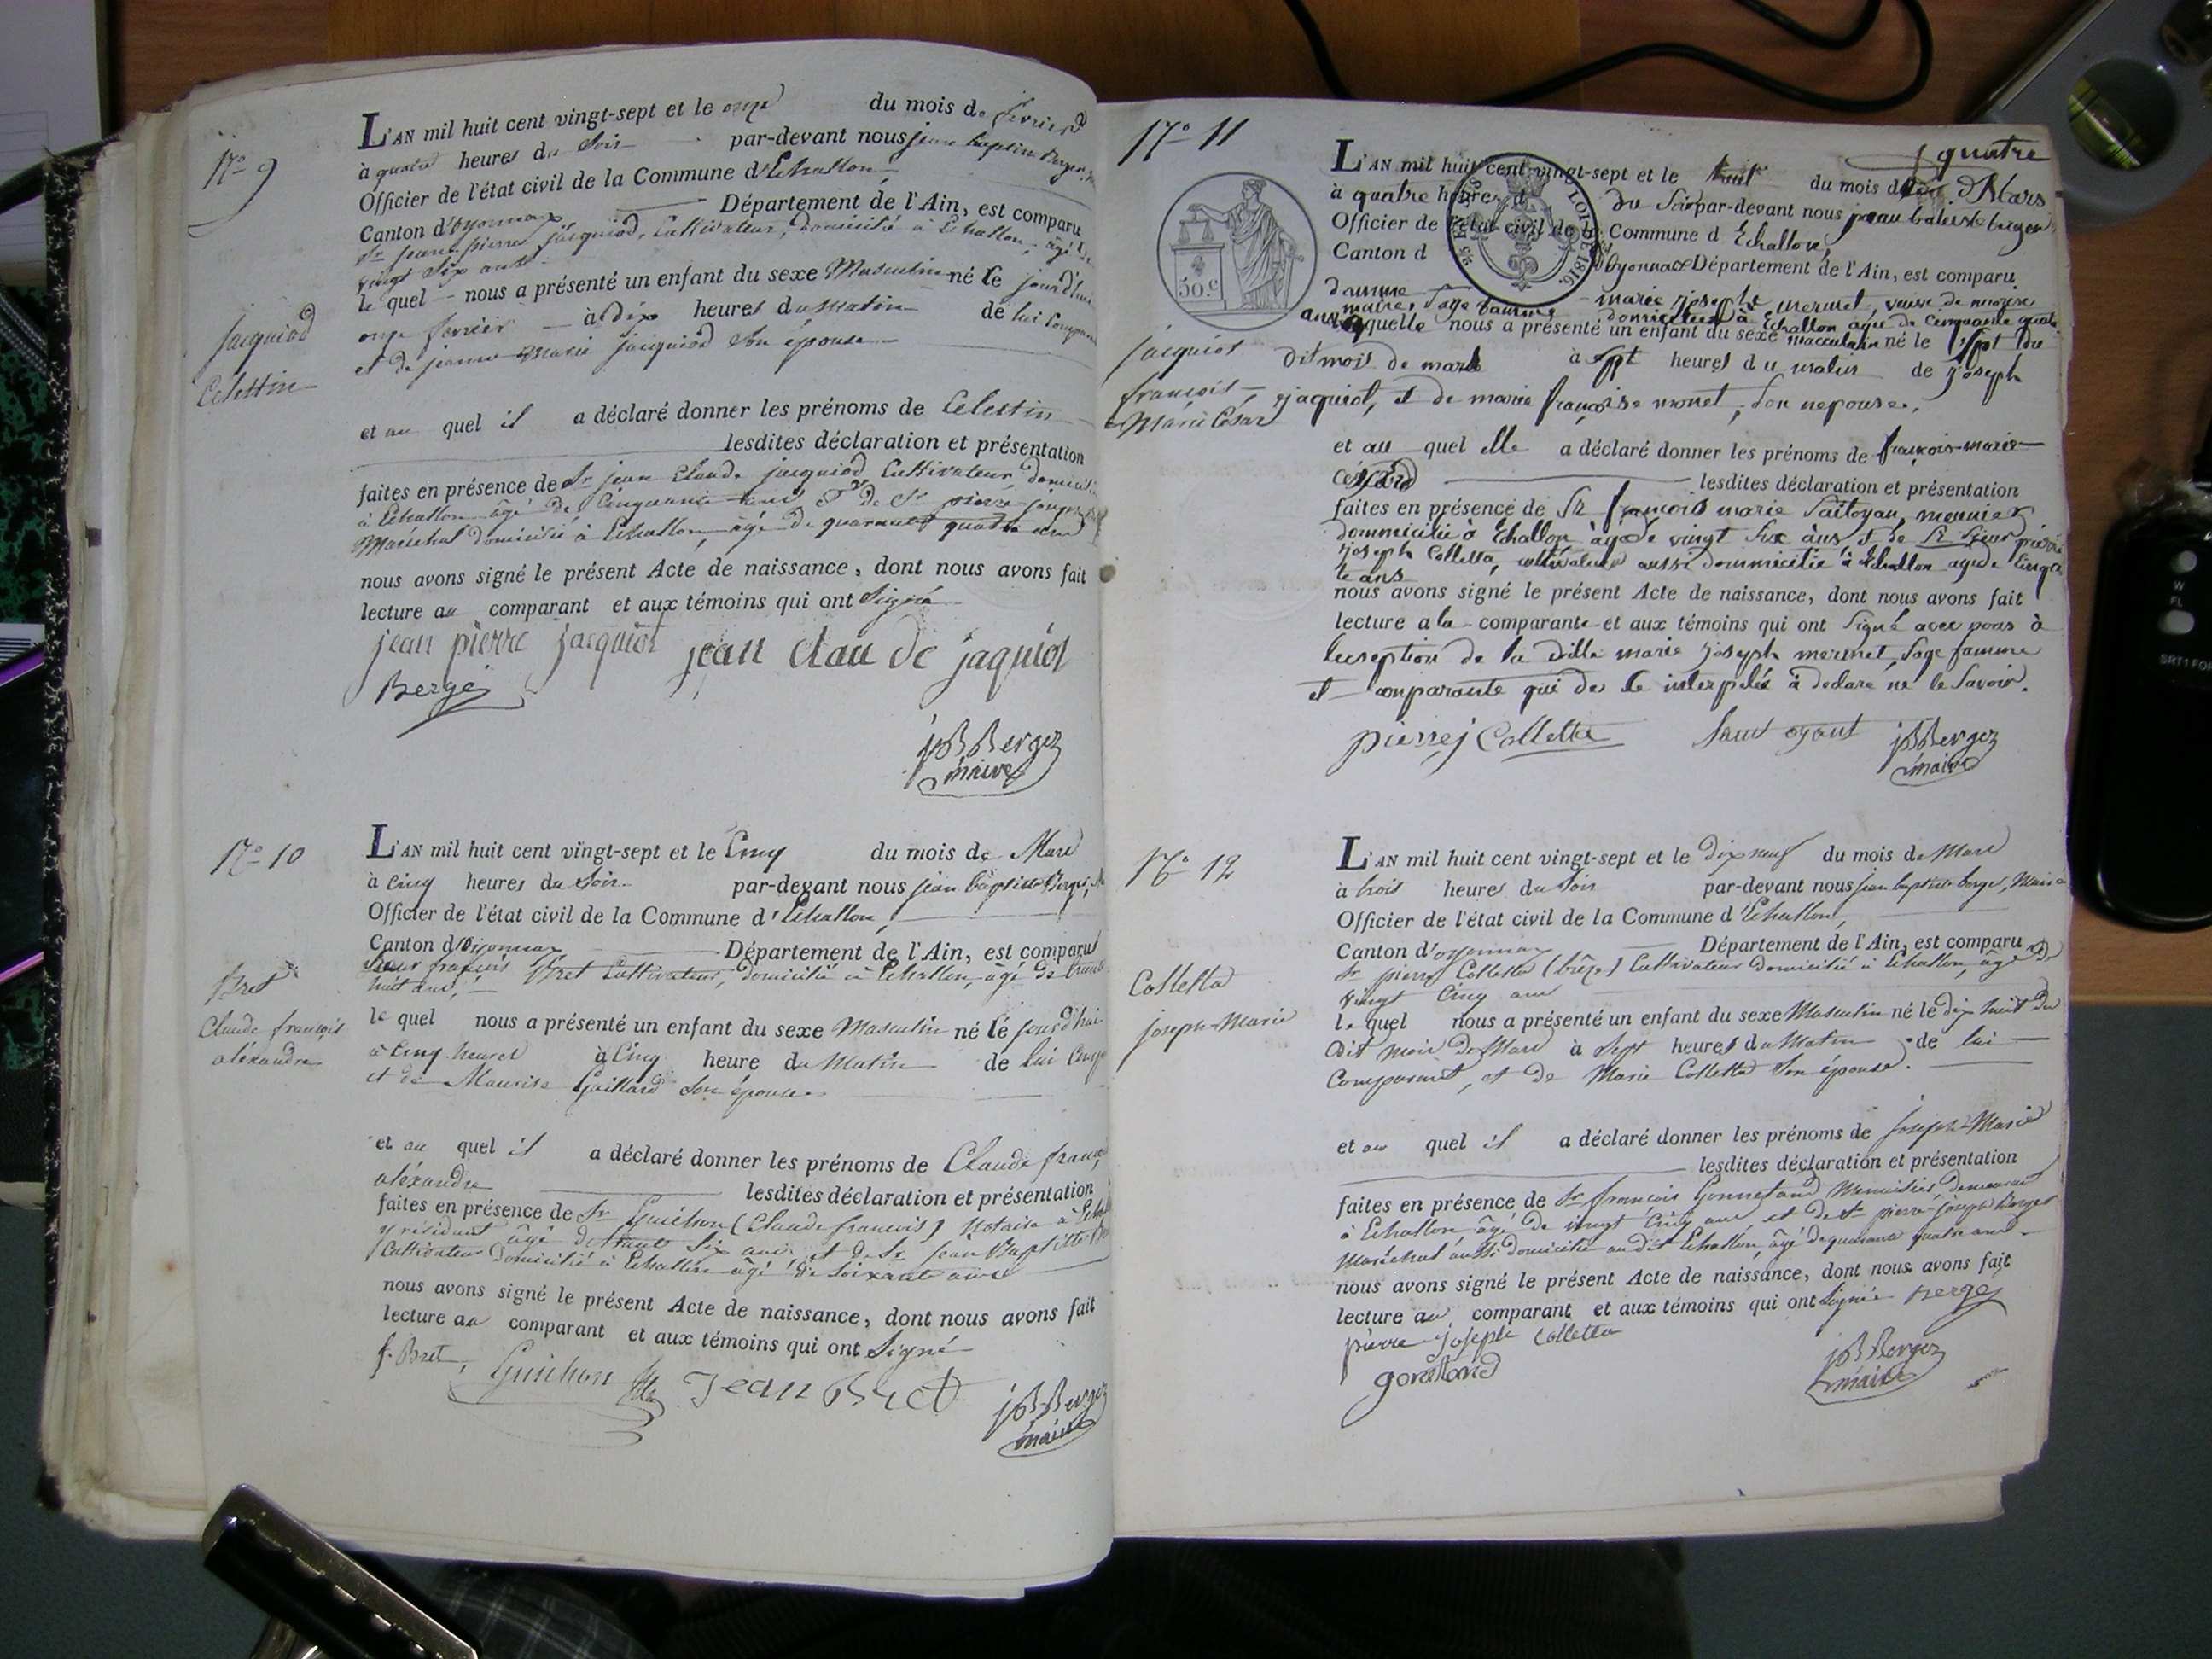 N° 9
L'AN mil huit cent vingt-sept et le onze du mois de fevrier
à quatre heures du Soir par-devant nous jean baptiste Berger,
Officier de l'état civil de la Commune d'Echallon,
Canton d'oyonnax Département de l'Ain, est comparu
Sr jean pierre jacquiod, Cultivateur, domicilié à Echallon, âgé de
vingt six ans
le quel nous a présenté un enfant du sexe Masculin né le jourd'hui
onze fevrier à dix heures du Matin de lui Comparant
et de jeanne Marie jacquiod Son épouse
jacquiod
Celestin
et au quel il a déclaré donner les prénoms de Celestin
lesdites déclaration et présentation
faites en présence de Sr jean Claude jacquiod Cultivateur, domicilié
à Echallon âgé de Cinquante ans & de Sr pierre joseph
Maréchal domicilié à Echallon, âgé de quarante quatre ans
nous avons signé le présent Acte de naissance, dont nous avons fait
lecture au comparant et aux témoins qui ont Signé
jean pierre jacquiot jean clau de jaquiot
Berger
jB Berger
maire
N° 10
L'AN mil huit cent vingt-sept et le Cinq du mois de Mars
à Cinq heures du Soir par-devant nous jean baptiste Berger,
Officier de l'état civil de la Commune d'Echallon,
Canton d'oyonnax Département de l'Ain, est comparu
Sieur françois Bret Cultivateur, domicilié à Echallon, âgé de trente
huit ans,
Bret
Claude françois
aléxandre
le quel nous a présenté un enfant du sexe Masculin né le jourd'hui
à Cinq heures à Cinq heure du Matin de lui Comp
et de Maurise Gaillard Son épouse
et au quel il a déclaré donner les prénoms de Claude franç
aléxandre lesdites déclaration et présentation
faites en présence de Sr Guichon (Claude francois) Notaire à
y résidant âgé de trente Six ans et de Sr Jean Baptiste
Cultivateur Domicilié à Echallon âgé de Soixante ans
nous avons signé le présent Acte de naissance, dont nous avons fait
lecture au comparant et aux témoins qui ont Signé
f. Bret, Guichon Jean Bret
jB Berger
maire
N° 11
quatre
L'AN mil huit cent vingt-sept et le huit du mois de Mars
à quatre heures du Soir par-devant nous jean batiste berger
Officier de l'état civil de la Commune d Echallon,
Canton d oyonnax Département de l'Ain, est comparu
50.c
LOI DE 1816
damme marie joseph mermet, veuve de
maire, Sage famme domiciliée à Echallon agée de cinquante quatre
ans laquelle nous a présenté un enfant du sexe masculin né le Sept du
dit mois de mars à Sept heures du matin de joseph
jaquiot, et de marie françoise monet, Son nepouse.
jacquiot
francois
Marie César
et au quel elle a déclaré donner les prénoms de françois-marie
César lesdites déclaration et présentation
faites en présence de Sr françois marie Saitoyan, meunier
dommicilié à Echallon âgé de vingt six ans & de Sr Sieur pierre
joseph Colletta, cultivateur aussi dommicilié à Echallon agé de Cinqu
te ans
nous avons signé le présent Acte de naissance, dont nous avons fait
lecture a la comparante et aux témoins qui ont Signé avec nous à
lexseption de la dille marie joseph mermet, Sage famme
et comparante qui de ce interpelée à declaré ne le Savoir.
pierre j Colletta Saut oyant jB Berger
maire
N° 12
L'AN mil huit cent vingt-sept et le dix neuf du mois de Mars
à trois heures du Soir par-devant nous jean baptiste berger, Maire
Officier de l'état civil de la Commune d'Echallon,
Canton d'oyonnax Département de l'Ain, est comparu
Sr pierre Colletta Cultivateur domicilié à Echallon, âgé de
Vingt Cinq ans
Colletta
joseph-Marie
le quel nous a présenté un enfant du sexe Masculin né le dix huit du
dit mois de Mars à Sept heures du Matin de lui
Comparant, et de Marie Colletta Son épouse.
et au quel il a déclaré donner les prénoms de joseph-Marie
lesdites déclaration et présentation
faites en présence de Sr françois Gonnetand Menuisier, demeurant
à Echallon, âgé de vingt Cinq ans et de Sr pierre-joseph Berger
Maréchal aussi domicilié au dit Echallon, âgé de quarante quatre ans
nous avons signé le présent Acte de naissance, dont nous avons fait
lecture au comparant et aux témoins qui ont Signé Berger
pierre joseph Colletta
jB Berger
maire